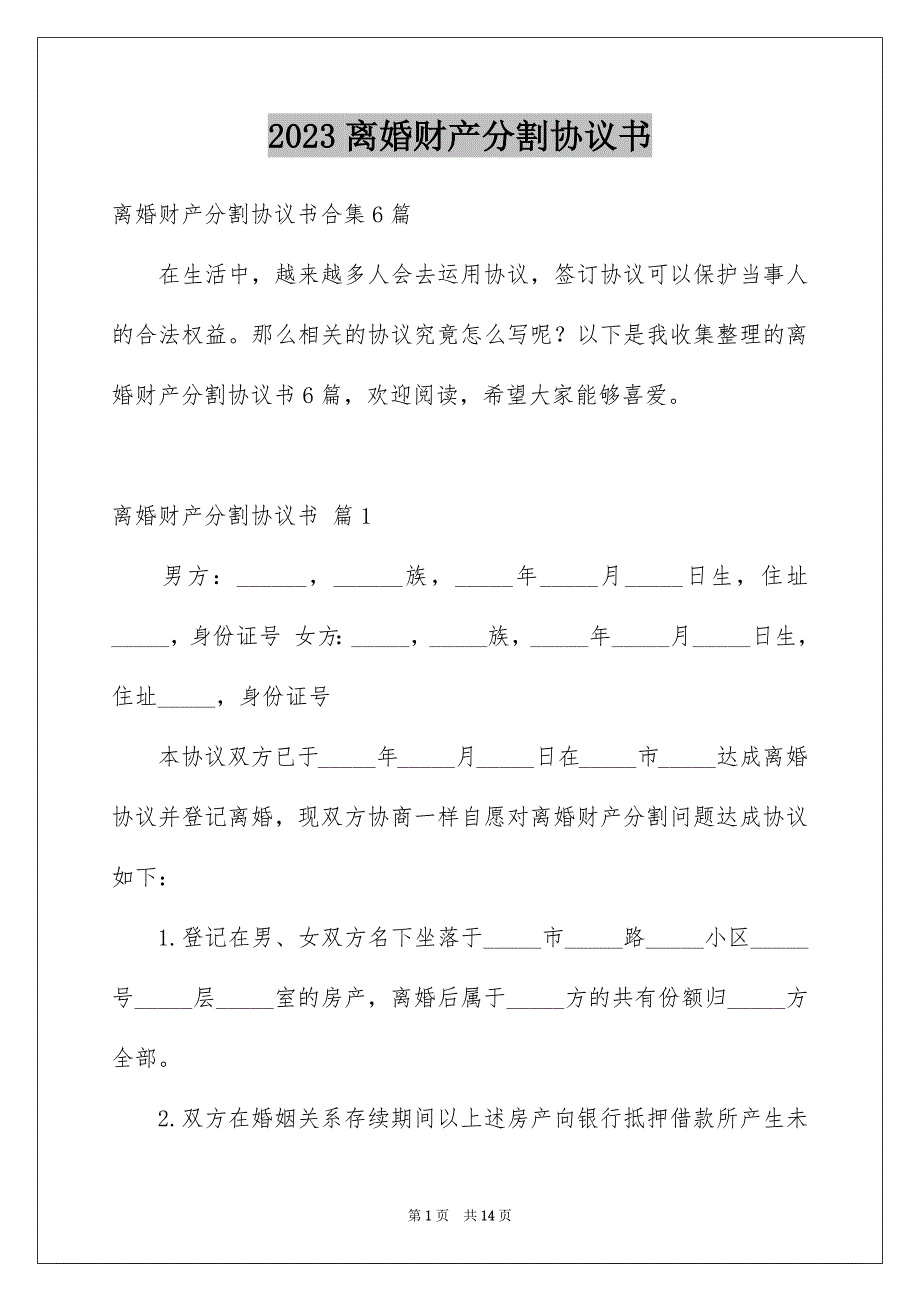 2023离婚财产分割协议书
离婚财产分割协议书合集6篇
在生活中，越来越多人会去运用协议，签订协议可以保护当事人
的合法权益。那么相关的协议究竟怎么写呢？以下是我收集整理的离
婚财产分割协议书6篇，欢迎阅读，希望大家能够喜爱。
离婚财产分割协议书 篇1
男方：______，______族，_____年_____月_____日生，住址
_____，身份证号 女方：_____，_____族，_____年_____月_____日生，
住址_____，身份证号
本协议双方已于_____年_____月_____日在_____市_____达成离婚
协议并登记离婚，现双方协商一样自愿对离婚财产分割问题达成协议
如下：
1.登记在男、女双方名下坐落于_____市_____路_____小区_____
号_____层_____室的房产，离婚后属于_____方的共有份额归_____方
全部。
2.双方在婚姻关系存续期间以上述房产向银行抵押借款所产生未
第1页 共14页